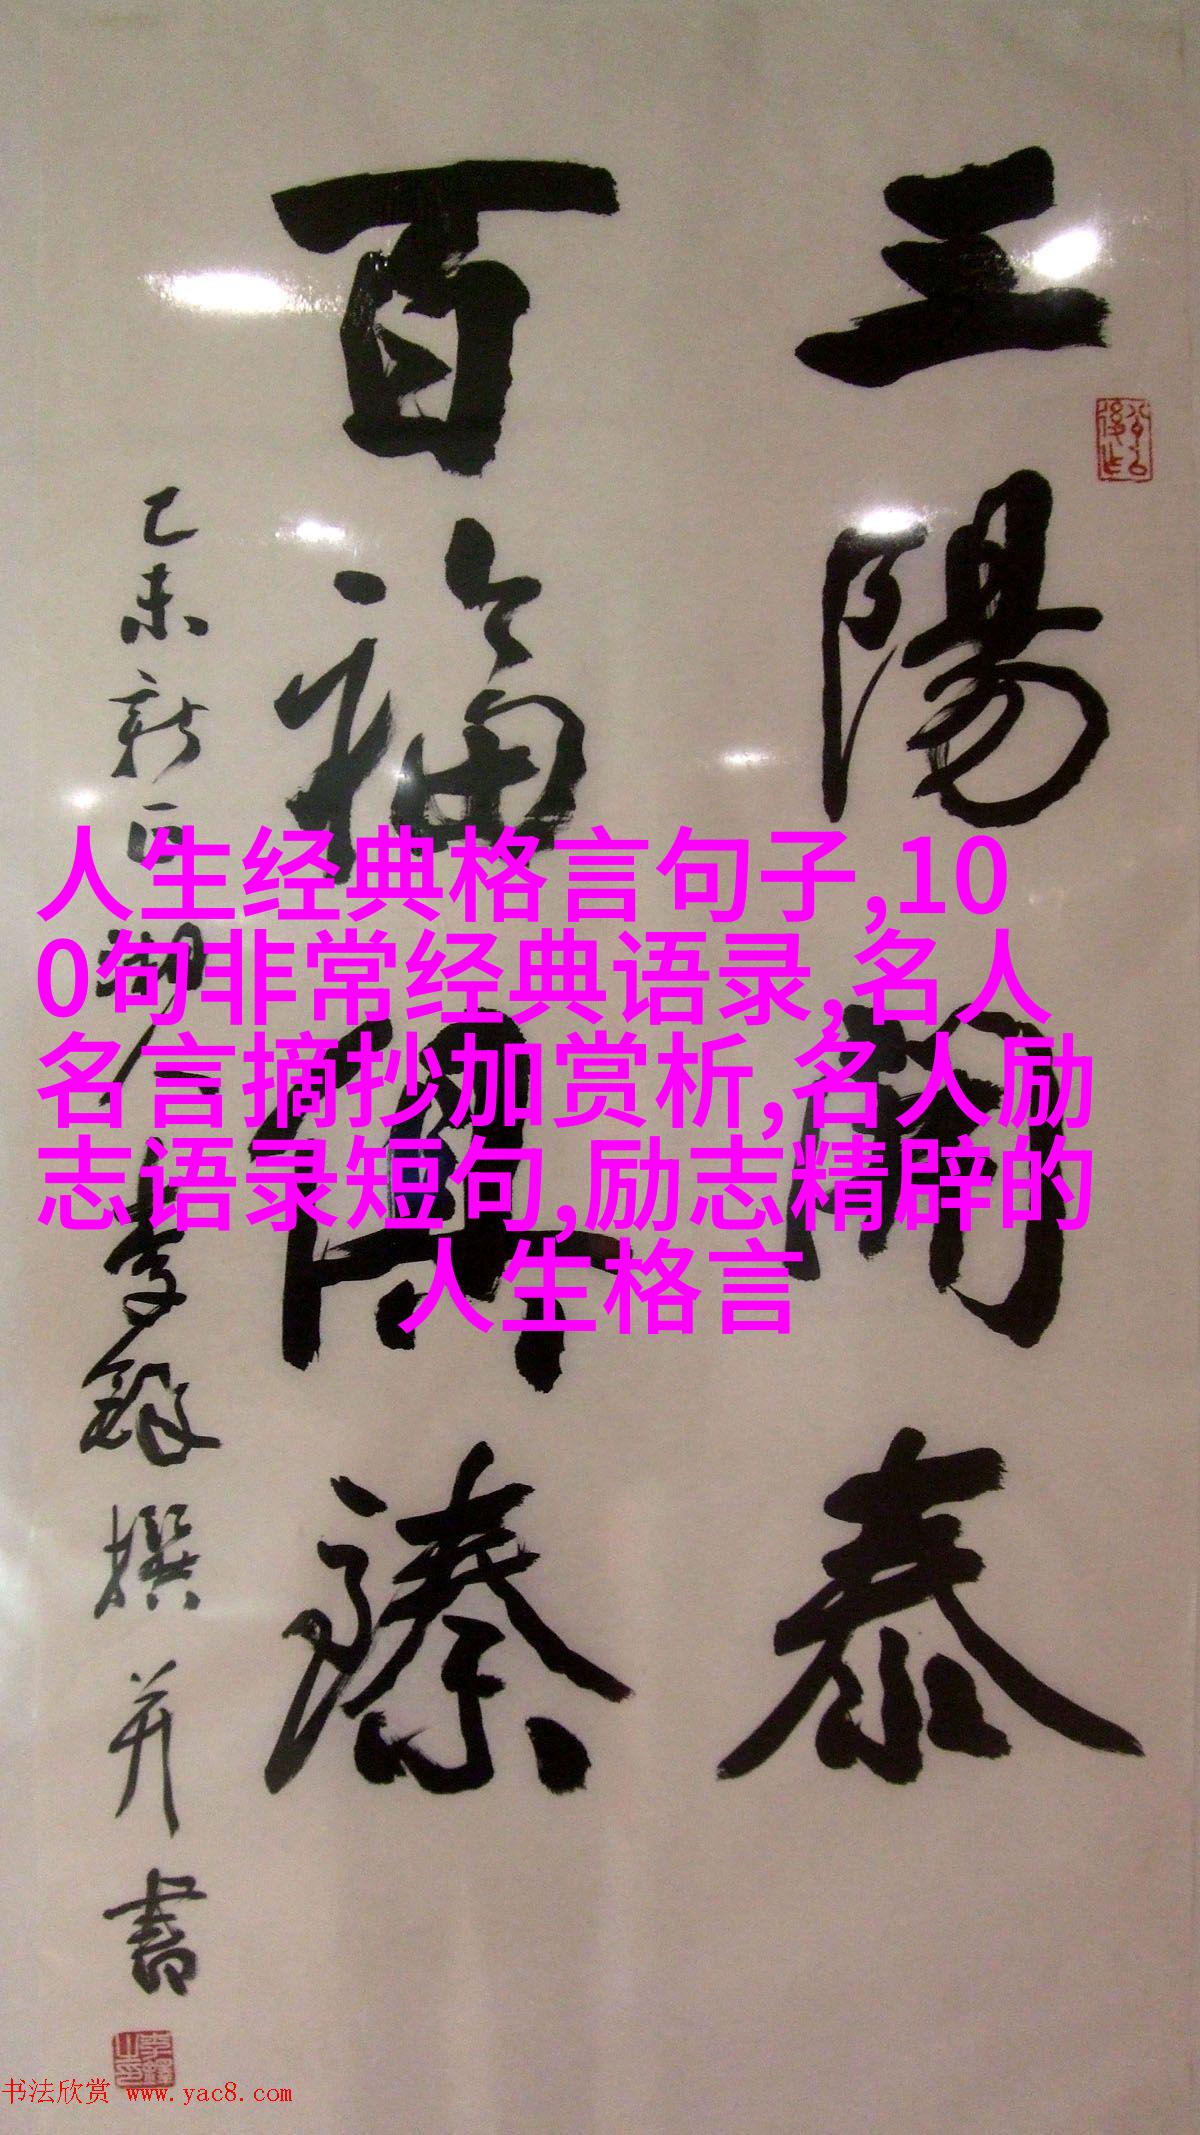 三陽開泰
百福俱臻
乙未新正湖人李鐸撰并書
李鐸
人生经典格言句子,10
0句非常经典语录,名人
名言摘抄加赏析,名人励
志语录短句,励志精辟的
人生格言
书法欣赏 www.yac8.com